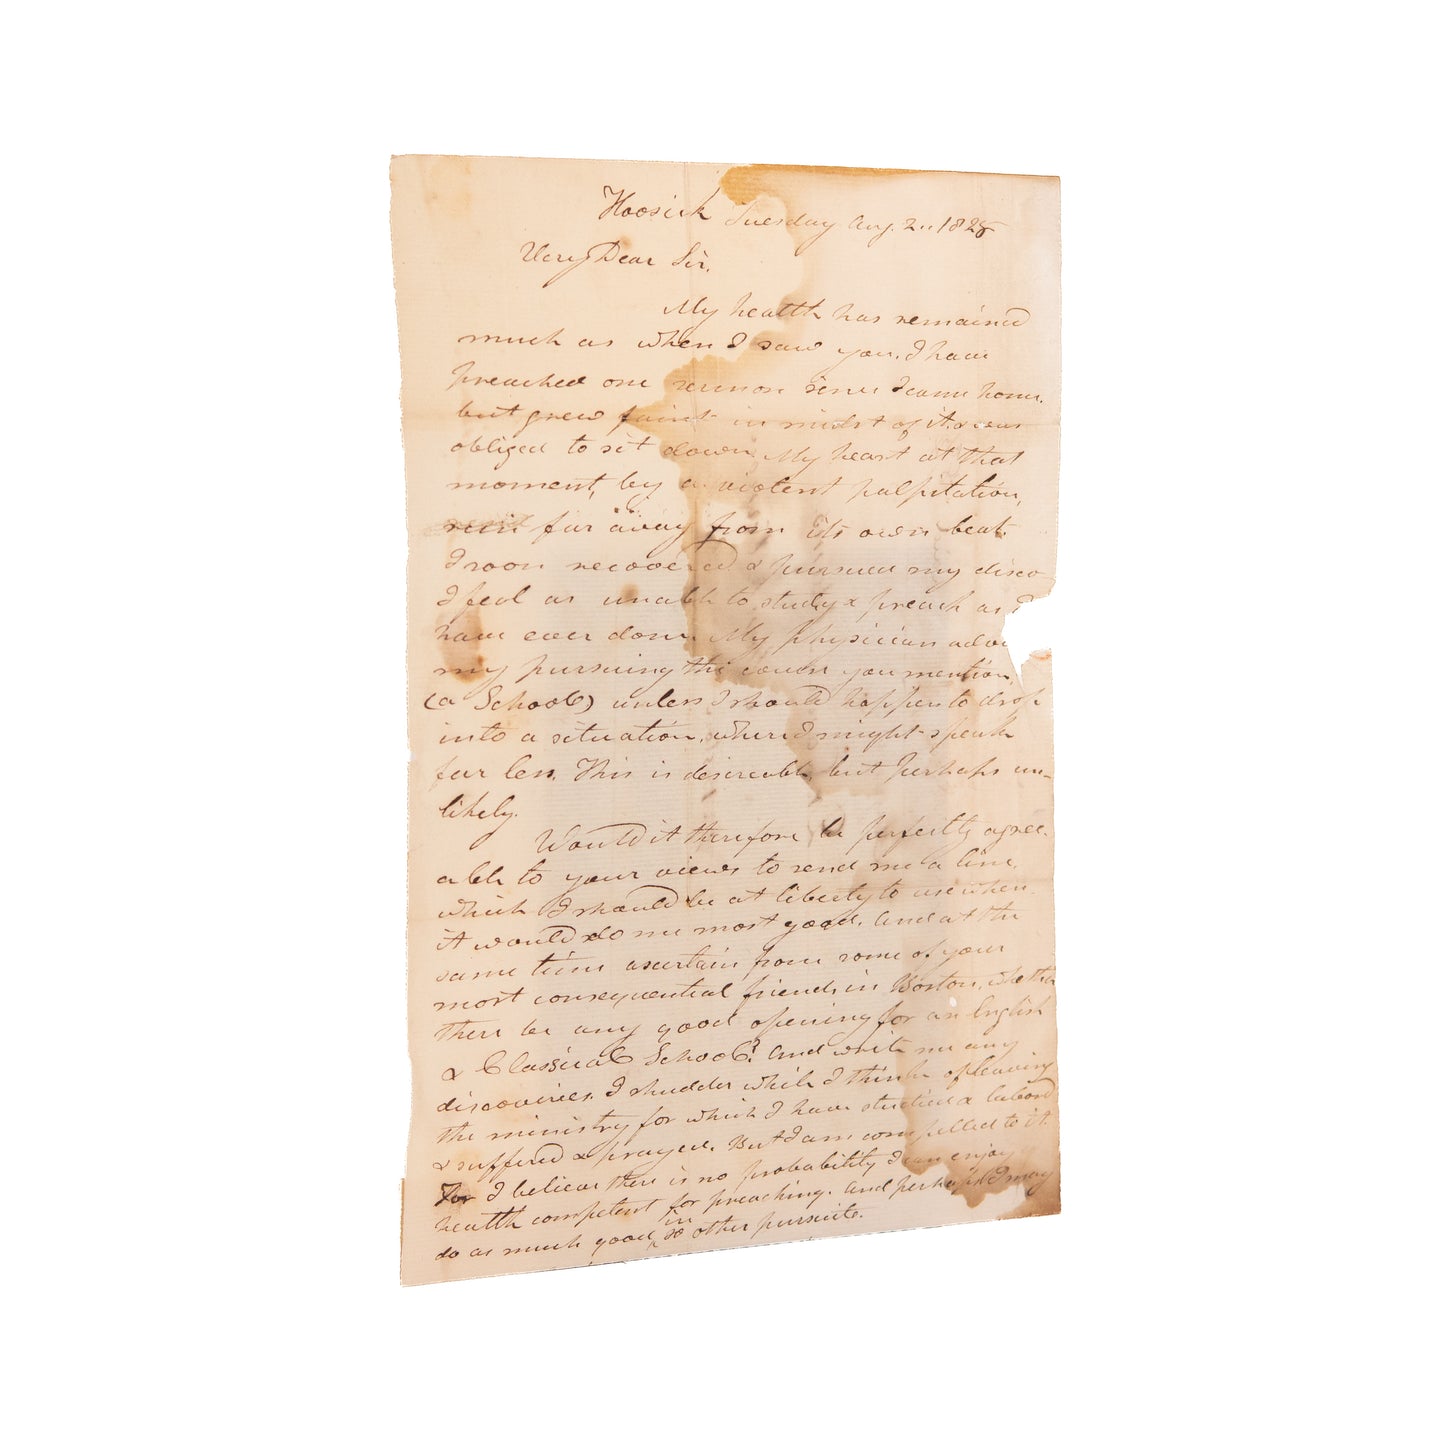 Hoosick Tuesday Aug. 2.. 1825
Very Dear Sir.
My health has remained
much as when I saw you. I have
preached one sermon since I came home.
but grew faint in midst of it & was
obliged to sit down. My heart at that
moment, by a violent palpitation,
far away from its own beat.
I soon recovered & pursued my disco
I feel as unable to study & preach as I
have ever done. My physician advi
my pursuing the course you mention,
(a School) unless I should happen to drop
into a situation, where I might speak
far less. This is desireable, but perhaps un-
likely.
Would it therefore be perfectly agree-
able to your views to send me a line,
which I should be at liberty to use when
it would do me most good. And at the
same time ascertain from some of your
most consequential friends in Boston, whether
there be any good opening for an English
& Classical School? And write me any
discoveries. I shudder while I think of leaving
the ministry for which I have studied & labored
& suffered & prayed. But I am compelled to it.
For I believe there is no probability I can enjoy
health competent for preaching. And perhaps I may
in
do as much good, so other pursuits.